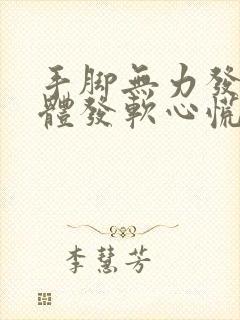 手脚無力發
體發軟心慌
李慧芳